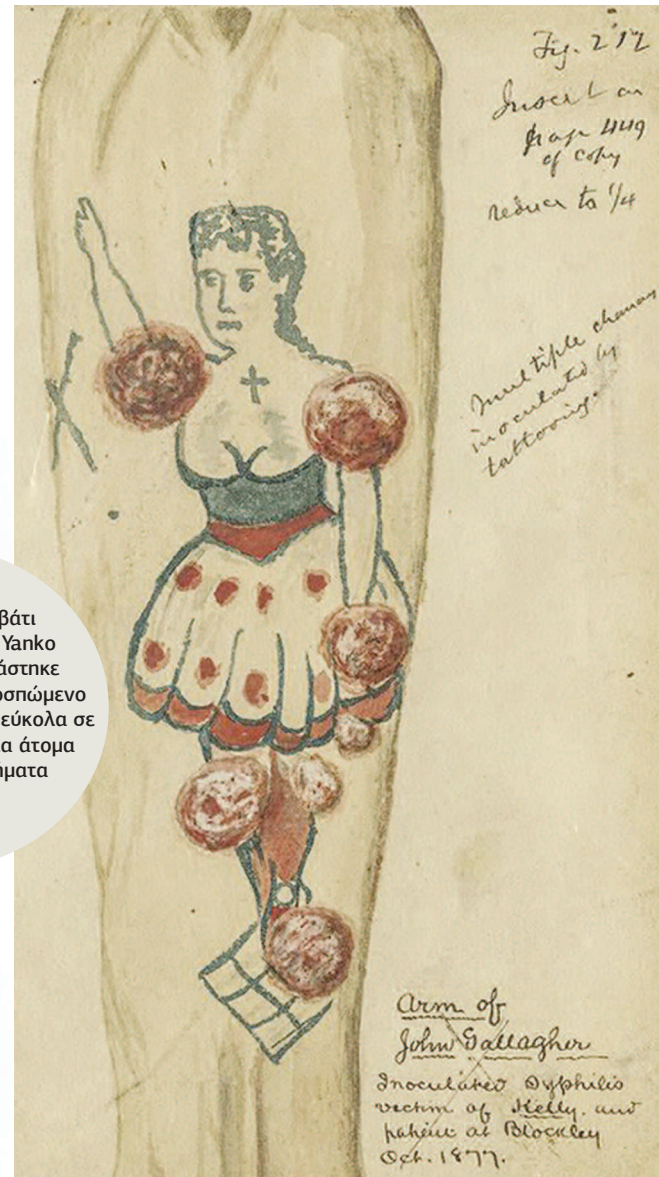 Fig. 212
Insert on
page 449
of copy
reduce to 1/4
multiple chancres
inoculated by
tattooing.
βάτι
Yanko
άστηκε
οσπώμενο
εύκολα σε
α άτομα
ήματα
Arm of
John Gallagher
Inoculated Syphilis
victim of Kelly. and
patient at Blockley
Oct. 1877.